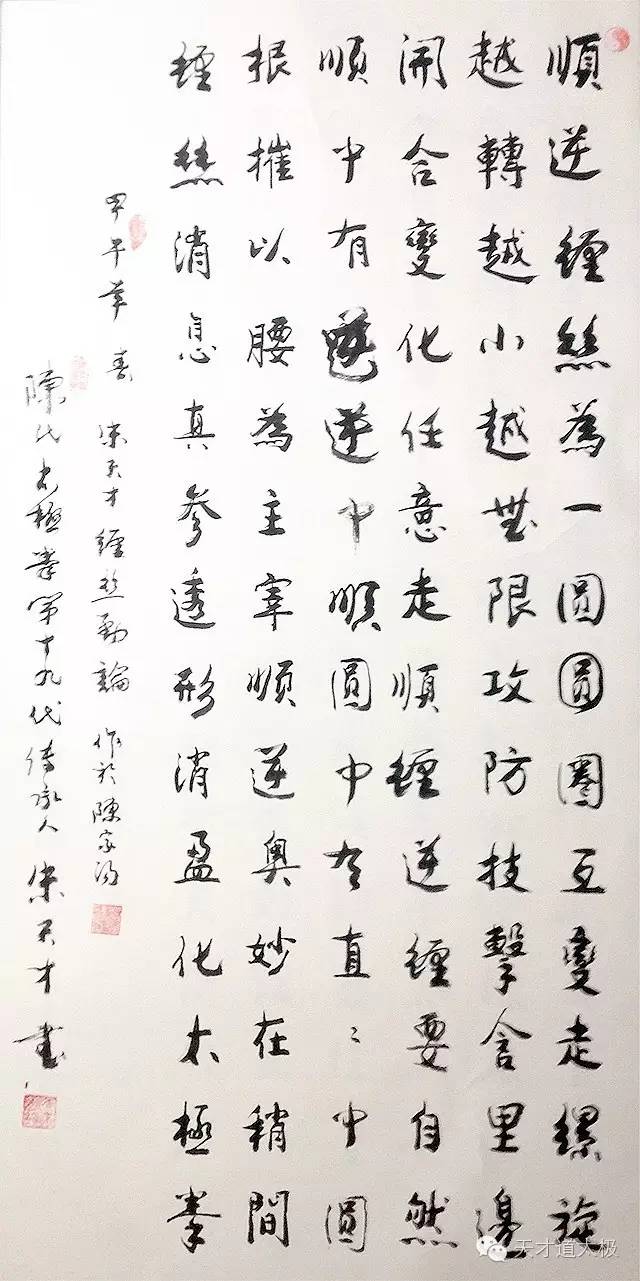 順逆纏絲為一圓圓圈互變走縲旋
越轉越小越無限攻防技擊含里邊
開合變化任意走順纏逆纏要自然
順中有逆逆中順圓中有直〻中圓
根摧以腰為主宰順逆奧妙在稍間
纏絲消息真參透形消盈化太極拳
甲午年春宋天才纏絲勁論作於陳家溝
陳氏太極拳第十九代傳承人宋天才書
天才道太极